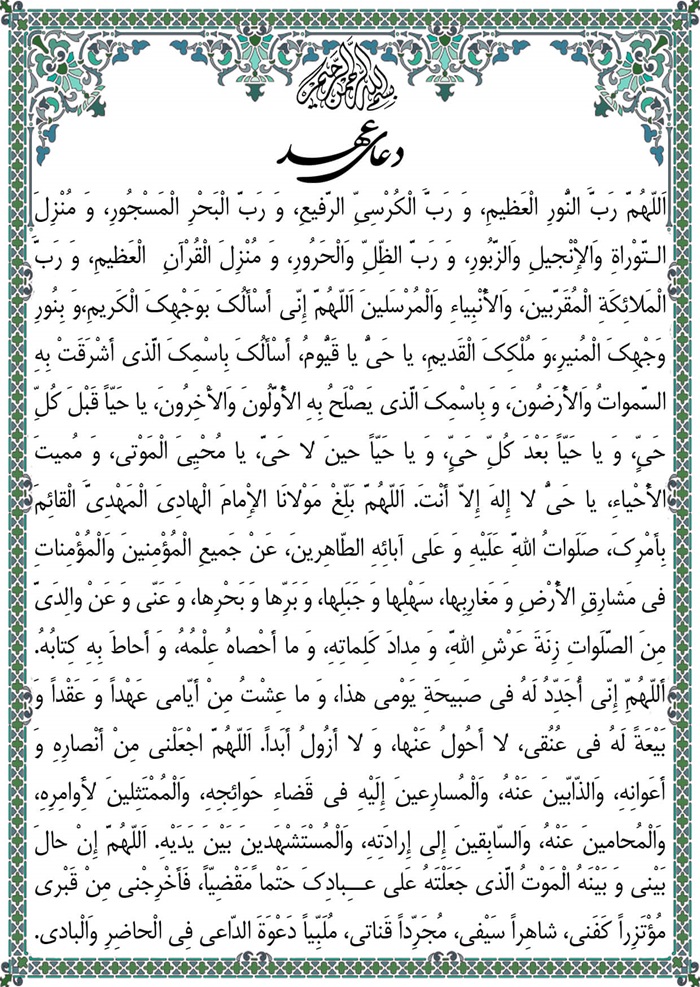 بسم الله الرحمن الرحيم
دعای عهد
اَللّهُمَّ رَبَّ النُّورِ الْعَظیمِ، وَ رَبَّ الْکُرْسِیِّ الرَّفیعِ، وَ رَبَّ الْبَحْرِ الْمَسْجُورِ، وَ مُنْزِلَ
الـتَّوْراةِ وَالإِْنْجیلِ وَالزَّبُورِ، وَ رَبَّ الظِّلِّ وَالْحَرُورِ، وَ مُنْزِلَ الْقُرْآنِ الْعَظیمِ، وَ رَبَّ
الْمَلائِکَةِ الْمُقَرَّبینَ، وَالأَْنْبِیاءِ وَالْمُرْسَلینَ اَللّهُمَّ إِنّی أَسْأَلُکَ بوَجْهِکَ الْکَریمِ،وَ بِنُورِ
وَجْهِکَ الْمُنیرِ،وَ مُلْکِکَ الْقَدیمِ، یا حَیُّ یا قَیُّومُ، أَسْأَلُکَ بِاسْمِکَ الَّذی أَشْرَقَتْ بِهِ
السَّمواتُ وَالأَْرَضُونَ، وَ بِاسْمِکَ الَّذی یَصْلَحُ بِهِ الأَْوَّلُونَ وَالأْخِرُونَ، یا حَیّاً قَبْلَ کُلِّ
حَیٍّ، وَ یا حَیّاً بَعْدَ کُلِّ حَیٍّ، وَ یا حَیّاً حینَ لا حَیَّ، یا مُحْیِیَ الْمَوْتی، وَ مُمیتَ
الأَْحْیاءِ، یا حَیُّ لا إِلهَ إِلاّ أَنْتَ. اَللّهُمَّ بَلِّغْ مَوْلانَا الإِْمامَ الْهادِیَ الْمَهْدِیَّ الْقائِمَ
بِأَمْرِکَ، صَلَواتُ اللَّهِ عَلَیْهِ وَ عَلی آبائِهِ الطّاهِرینَ، عَنْ جَمیعِ الْمُؤْمِنینَ وَالْمُؤْمِناتِ
فی مَشارِقِ الأَْرْضِ وَ مَغارِبِها، سَهْلِها وَ جَبَلِها، وَ بَرِّها وَ بَحْرِها، وَ عَنّی وَ عَنْ والِدَیَّ
مِنَ الصَّلَواتِ زِنَةَ عَرْشِ اللَّهِ، وَ مِدادَ کَلِماتِهِ، وَ ما أَحْصاهُ عِلْمُهُ، وَ أَحاطَ بِهِ کِتابُهُ.
أَللّهُمَّ إِنّی أُجَدِّدُ لَهُ فی صَبیحَةِ یَوْمی هذا، وَ ما عِشْتُ مِنْ أَیّامی عَهْداً وَ عَقْداً وَ
بَیْعَةً لَهُ فی عُنُقی، لا أَحُولُ عَنْها، وَ لا أَزُولُ أَبَداً. اَللّهُمَّ اجْعَلْنی مِنْ أَنْصارِهِ وَ
أَعْوانِهِ، وَالذّابّینَ عَنْهُ، وَالْمُسارِعینَ إِلَیْهِ فی قَضاءِ حَوائِجِهِ، وَالْمُمْتَثِلینَ لأَِوامِرِهِ،
وَالْمُحامینَ عَنْهُ، وَالسّابِقینَ إِلی إِرادَتِهِ، وَالْمُسْتَشْهَدینَ بَیْنَ یَدَیْهِ. اَللّهُمَّ إِنْ حالَ
بَیْنی وَ بَیْنَهُ الْمَوْتُ الَّذی جَعَلْتَهُ عَلی عِـــبادِکَ حَتْماً مَقْضِیّاً، فَأَخْرِجْنی مِنْ قَبْری
مُؤْتَزِراً کَفَنی، شاهِراً سَیْفی، مُجَرِّداً قَناتی، مُلَبِّیاً دَعْوَةَ الدّاعی فِی الْحاضِرِ وَالْبادی.